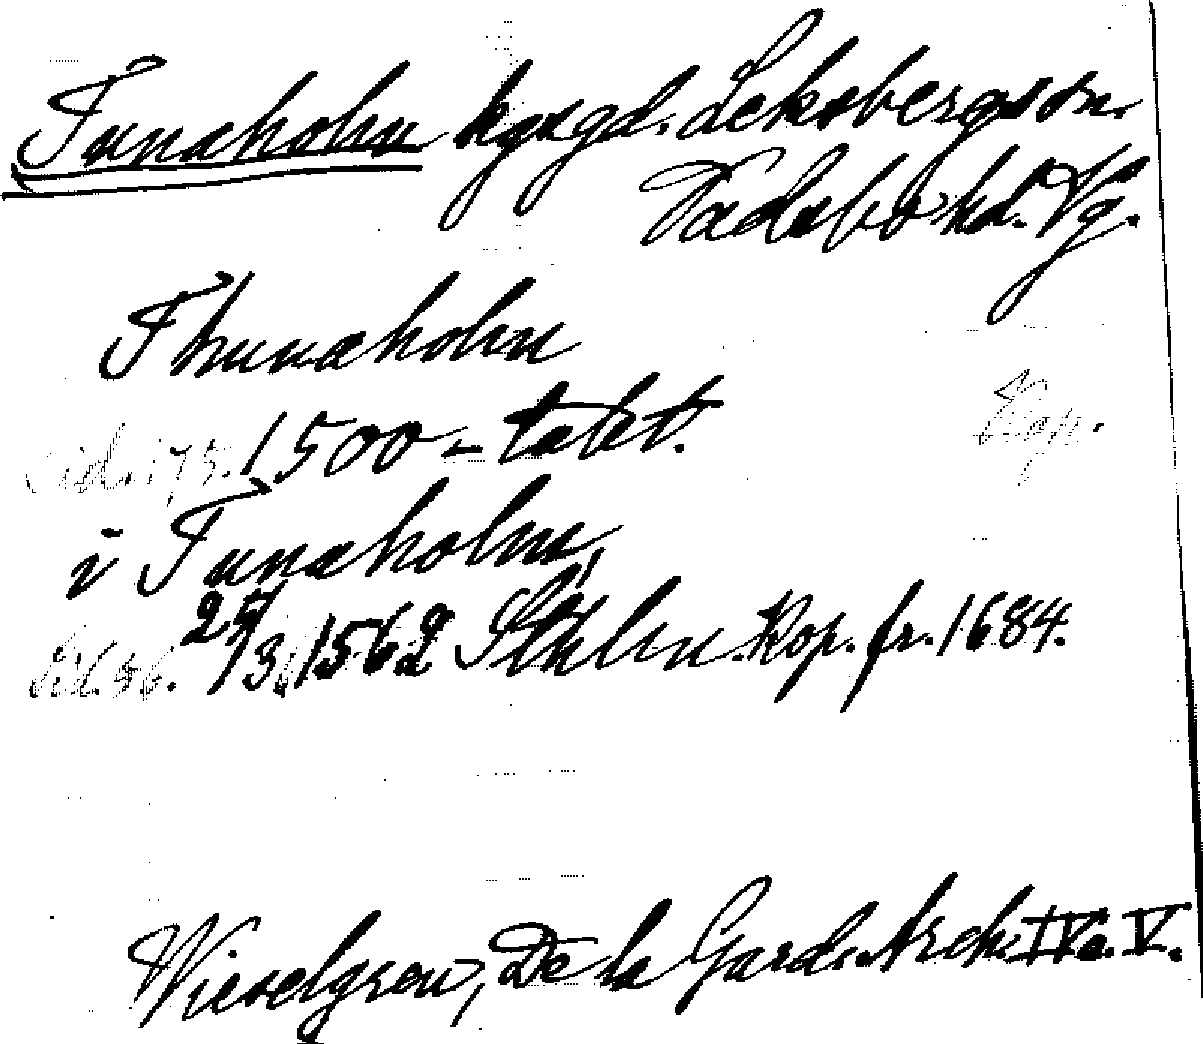 Tunaholm hgrgd. Leksbergs sn.
Vadsbo hd. Vg.
Thunaholm
Kop.
sid. 175. 1500-talet.
i Tunaholm,
sid. 56. 25/3 1562 Sthlm. Kop. fr. 1684.
Wieselgren, De la Gard. Arch. IV o. V.